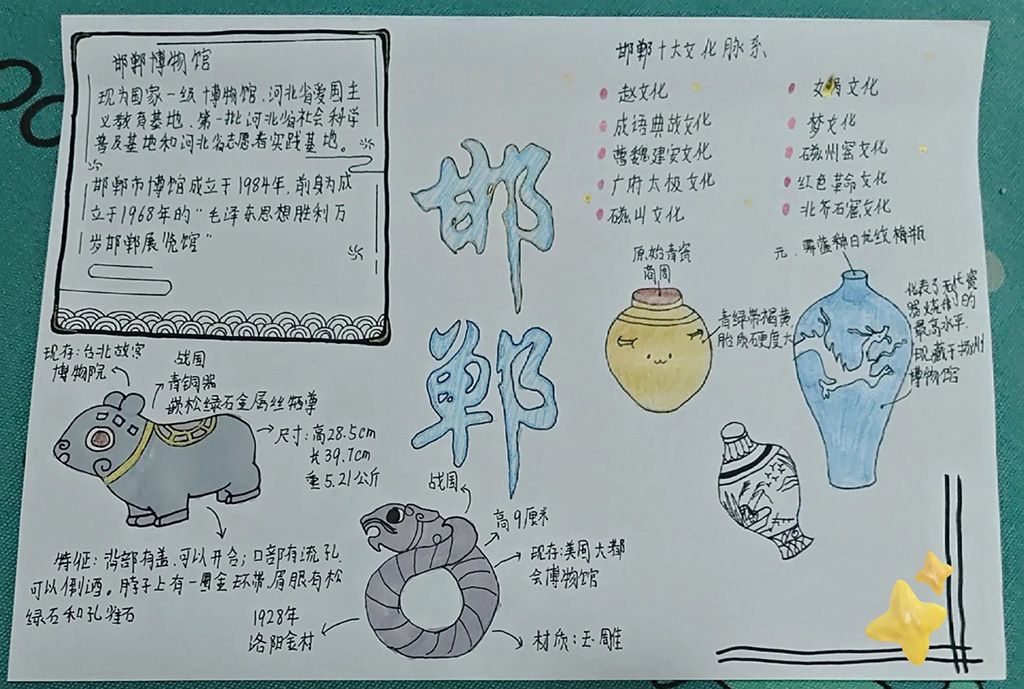 邯郸博物馆
现为国家一级博物馆、河北省爱国主
义教育基地、第一批河北省社会科学
普及基地和河北省志愿者实践基地。
邯郸市博物馆成立于1984年,前身为成
立于1968年的“毛泽东思想胜利万
岁邯郸展览馆”
邯郸
邯郸十大文化脉系
赵文化
女娲文化
成语典故文化
梦文化
曹魏建安文化
磁州窑文化
广府太极文化
红色革命文化
磁山文化
北齐石窟文化
原始青瓷
商周
青绿带褐黄,
胎质硬度大
元·霁蓝釉白龙纹梅瓶
代表了元代瓷
器烧制的
最高水平.
现藏于扬州
博物馆
现存:台北故宫
博物院
战国
青铜器
嵌松绿石金属丝牺尊
尺寸:高28.5cm
长39.7cm
重5.21公斤
特征:背部有盖,可以开合;口部有流孔,
可以倒酒。脖子上有一圈金环带,眉眼有松
绿石和孔雀石
战国
高9厘米
现存:美国大都
会博物馆
1928年
洛阳金村
材质:玉雕